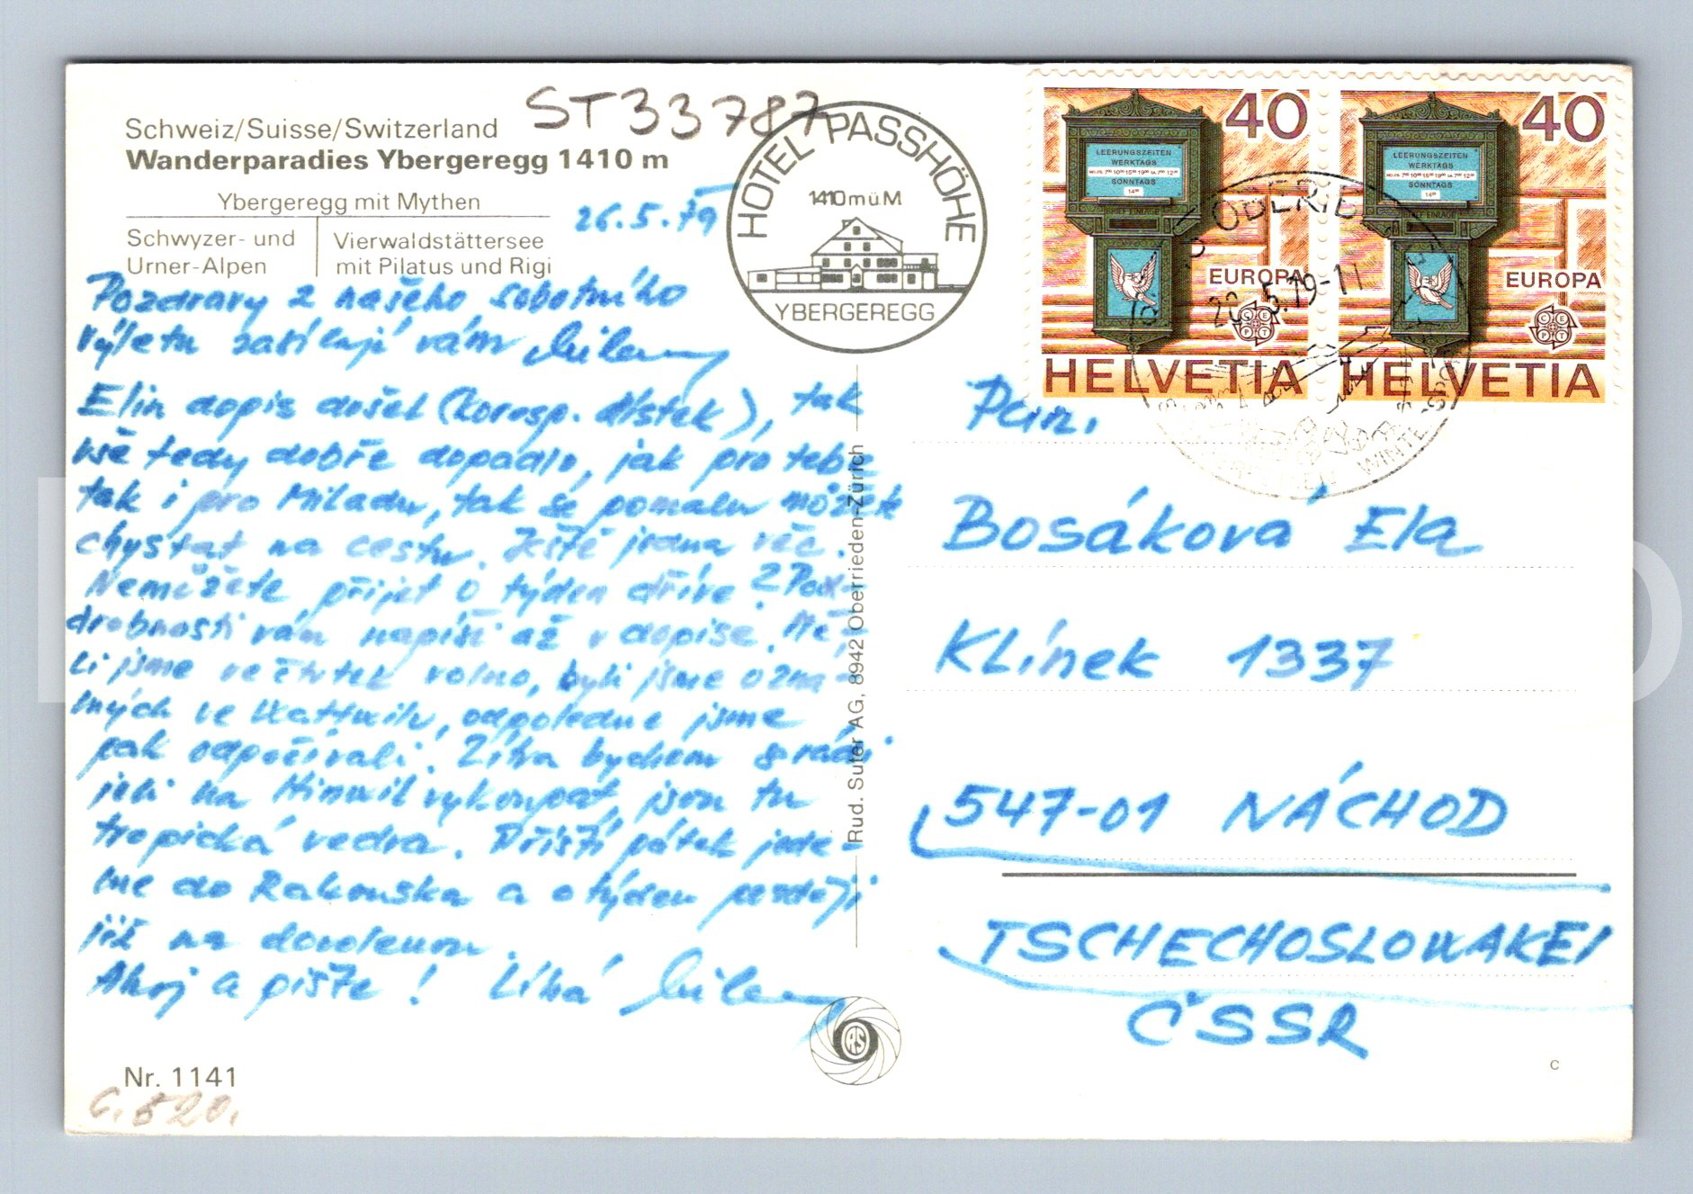 ST33787
Schweiz/Suisse/Switzerland
Wanderparadies Ybergeregg 1410 m
Ybergeregg mit Mythen
Schwyzer- und
Urner-Alpen
Vierwaldstättersee
mit Pilatus und Rigi
26.5.79
HOTEL PASSHÖHE
1410 m ü M
YBERGEREGG
40
LEERUNGSZEITEN
WERKTAGS
SONNTAGS
EUROPA
CEPT
HELVETIA
40
LEERUNGSZEITEN
WERKTAGS
SONNTAGS
EUROPA
CEPT
HELVETIA
Pozdravy z našeho sobotního
výletu zasílají vám
Elin dopis došel (koresp. lístek), tak
vše tedy dobře dopadlo, jak pro tebe
tak i pro Miladu, tak se pomalu můžete
chystat na cestu. Ještě jedna věc.
Nemůžete přijet o týden dříve? Pod-
drobnosti vám napíši až v dopise. Mě-
li jsme ve čtvrtek volno, byli jsme u zná-
mých ve Wattwilu, odpoledne jsme
pak odpočívali. Zítra bychom rádi
jeli na vykoupat, jsou tu
tropická vedra. Příští pátek jede-
me do Rakouska a o týden později
již na dovolenou.
Ahoj a pište! Líba
Paní
Bosáková Ela
Klínek 1337
547-01 NÁCHOD
TSCHECHOSLOWAKEI
ČSSR
Rud. Suter AG, 8942 Oberrieden-Zürich
RS
Nr. 1141
c